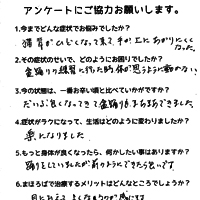 アンケートにご協力お願いします。
1.今までどんな症状でお悩みでしたか?
猫背がひどくなって来て、手が上にあがりにくくなった。
2.その症状のせいで、どのようにお困りでしたか?
金踊りの練習に行った時 体が思うように動かない。
3.今の状態は、一番お辛い頃と比べていかがですか?
だいぶ良くなってきて 金踊りもまあまあできました。
4.症状がラクになって、生活はどのように変わりましたか?
楽になりました
5.もっと身体が良くなったら、何かしたい事はありますか?
踊りをしていましたが 前のようにできたら良いです。
6.まほろばで治療するメリットはどんなところでしょうか?